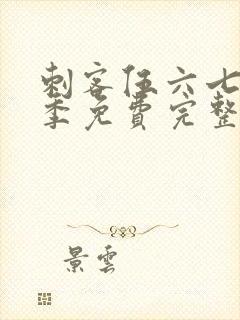 刺客伍六七
季免费完整
景雲